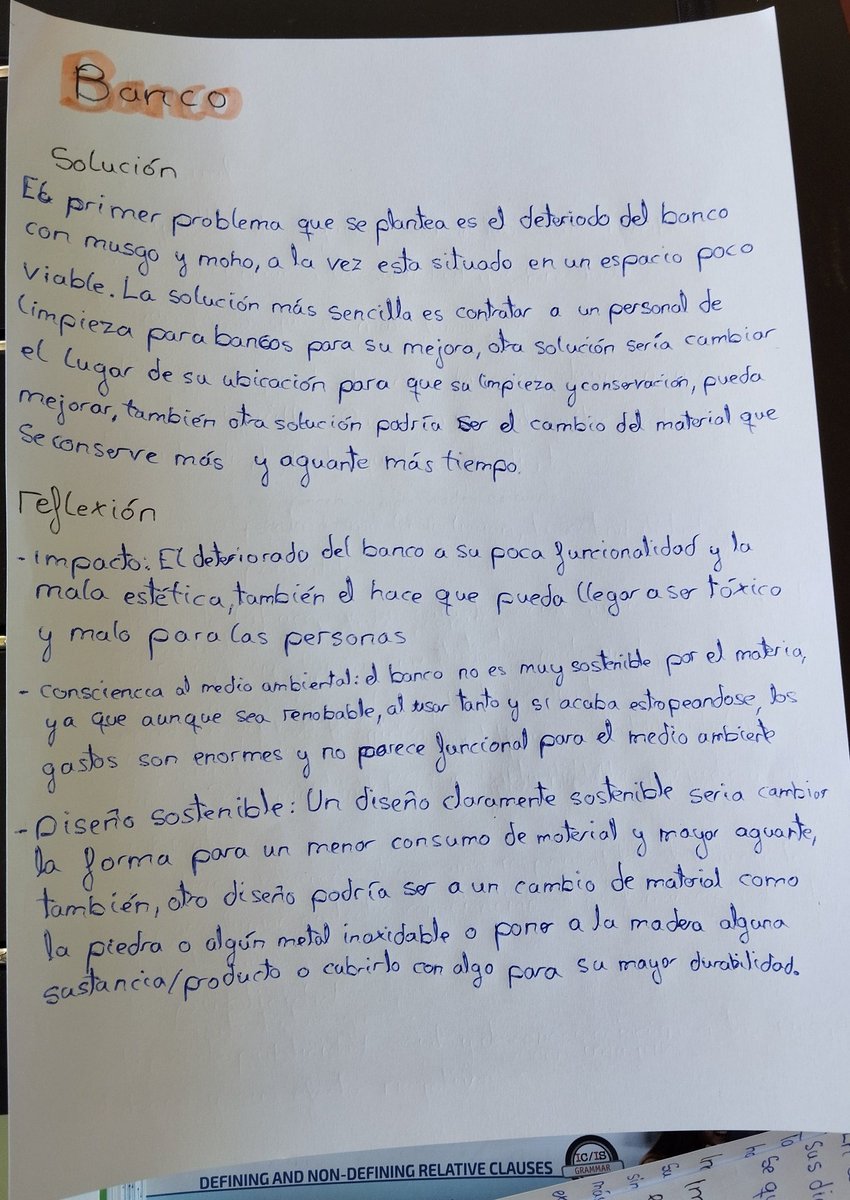 Banco
Solución
El primer problema que se plantea es el deteriodo del banco
con musgo y moho, a la vez esta situado en un espacio poco
viable. La solución más sencilla es contratar a un personal de
limpieza para bancos para su mejora, otra solución sería cambiar
el lugar de su ubicación para que su limpieza y conservación, pueda
mejorar, también otra solución podría ser el cambio del material que
se conserve más y aguante más tiempo.
reflexión
- impacto: El deteriorado del banco a su poca funcionalidad y la
mala estética, también el hace que pueda llegar a ser tóxico
y malo para las personas
- consciencia al medio ambiental: el banco no es muy sostenible por el materia,
ya que aunque sea renobable, al usar tanto y si acaba estropeandose, los
gastos son enormes y no parece funcional para el medio ambiente
- Diseño sostenible: Un diseño claramente sostenible seria cambiar
la forma para un menor consumo de material y mayor aguante,
también, otro diseño podría ser a un cambio de material como
la piedra o algún metal inoxidable o poner a la madera alguna
sustancia/producto o cubrirlo con algo para su mayor durabilidad.
DEFINING AND NON-DEFINING RELATIVE CLAUSES
IC/IS
GRAMMAR